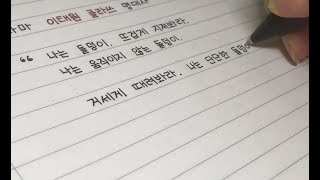 이태원 클라쓰 명대사
" 나는 돌덩이. 뜨겁게 지져봐라.
나는 움직이지 않는 돌덩이.
거세게 때려봐라. 나는 단단한 돌덩이